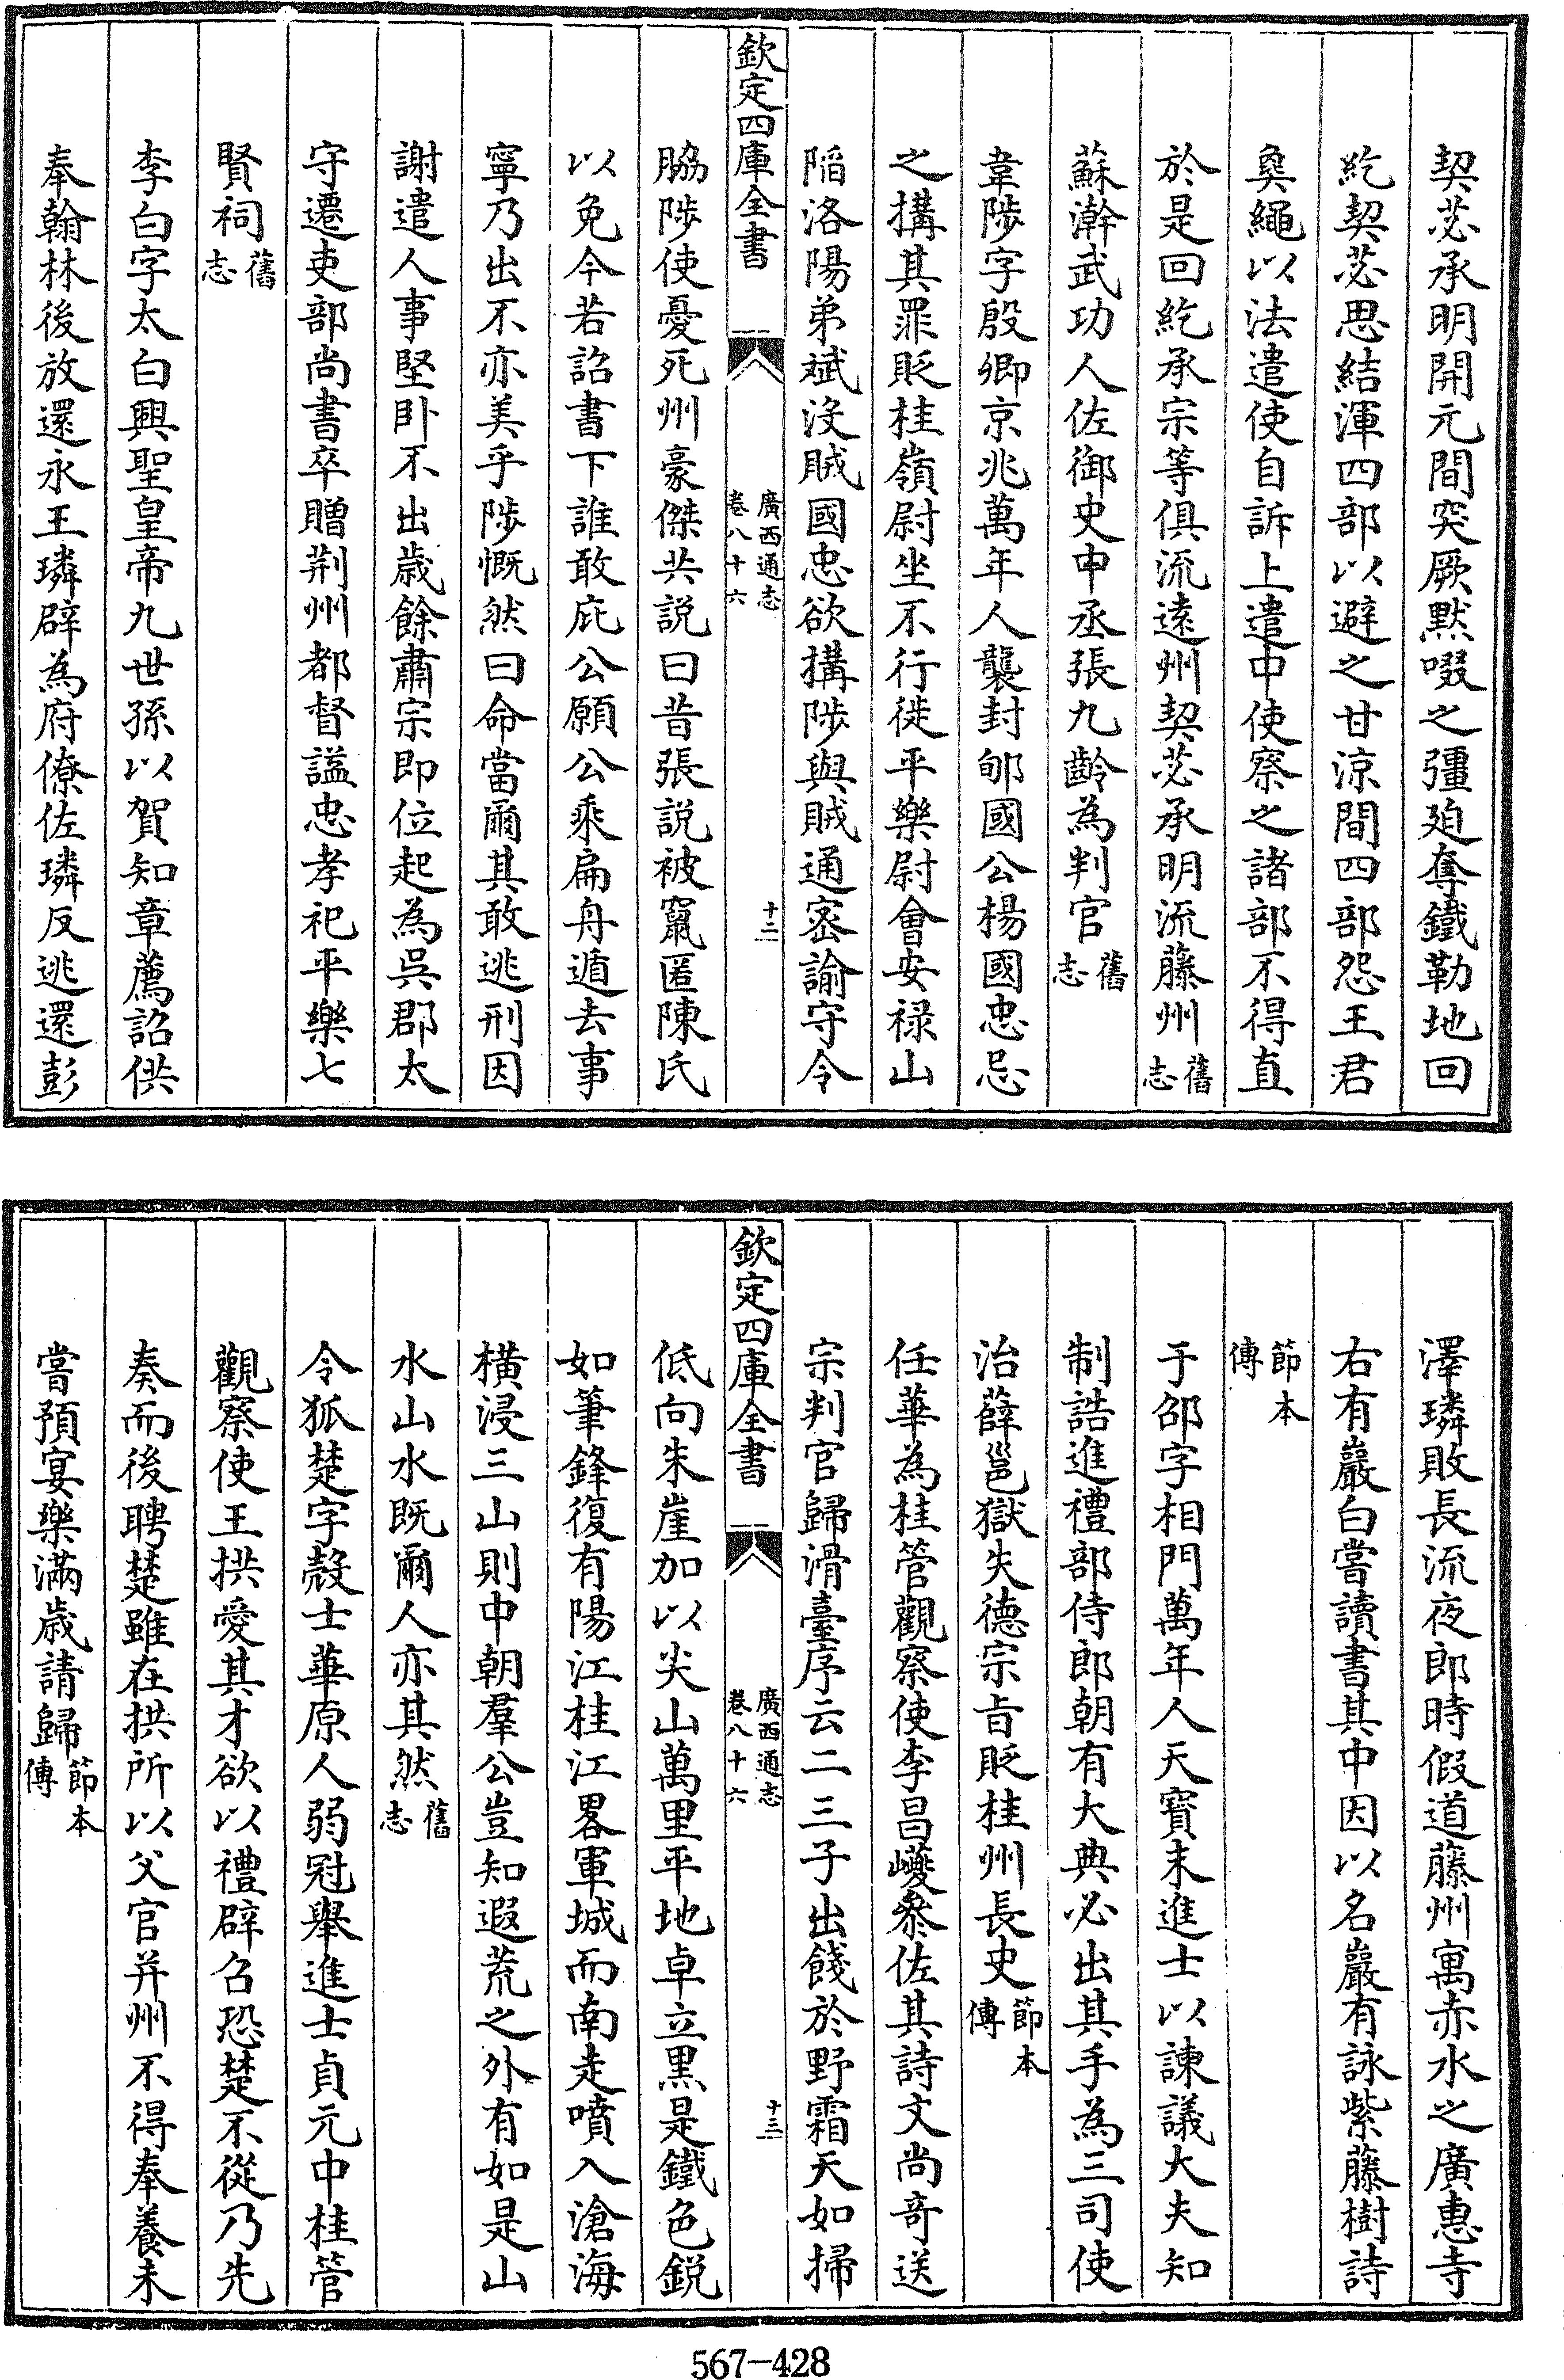 契苾承明開元間突厥黙啜之彊廹奪鐵勒地回
紇契苾思結渾四部以避之甘涼間四部怨王君
㚖繩以法遣使自訴上遣中使察之諸部不得直
於是回紇承宗等俱流遠州契苾承明流藤州舊志
蘇瀚武功人佐御史中丞張九齡為判官舊志
韋陟字殷卿京兆萬年人襲封郇國公楊國忠忌
之搆其罪貶桂嶺尉坐不行徙平樂尉會安禄山
䧟洛陽弟斌沒賊國忠欲搆陟與賊通宻諭守令
欽定四庫全書
廣西通志
卷八十六
十二
脇陟使憂死州豪傑共説曰昔張説被竄匿陳氏
以免今若詔書下誰敢庇公願公乘扁舟遁去事
寧乃出不亦美乎陟慨然曰命當爾其敢逃刑因
謝遣人事堅卧不出歲餘肅宗即位起為吳郡太
守遷吏部尚書卒贈荆州都督謚忠孝祀平樂七
賢祠舊志
李白字太白興聖皇帝九世孫以賀知章薦詔供
奉翰林後放還永王璘辟為府僚佐璘反逃還彭
澤璘敗長流夜郎時假道藤州寓赤水之廣惠寺
右有巖白嘗讀書其中因以名巖有詠紫藤樹詩
節本傳
于邵字相門萬年人天寳末進士以諫議大夫知
制誥進禮部侍郎朝有大典必出其手為三司使
治薛邕獄失德宗旨貶桂州長史節本傳
任華為桂管觀察使李昌巙叅佐其詩文尚奇送
宗判官歸滑臺序云二三子出餞於野霜天如掃
欽定四庫全書
廣西通志
卷八十六
十三
低向朱崖加以尖山萬里平地卓立黒是鐵色鋭
如筆鋒復有陽江桂江畧軍城而南走噴入滄海
横浸三山則中朝羣公豈知遐荒之外有如是山
水山水既爾人亦其然舊志
令狐楚字殻士華原人弱冠舉進士貞元中桂管
觀察使王拱愛其才欲以禮辟召恐楚不從乃先
奏而後聘楚雖在拱所以父官并州不得奉養未
嘗預宴樂滿歲請歸節本傳
567-428